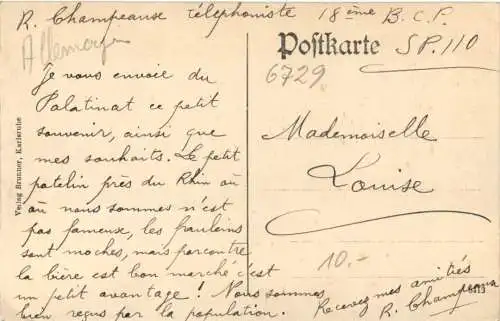 R. Champeause téléphoniste 18ème B.C.P.
SP.110
Allemagne
Postkarte
6729
Je vous envoie du
Palatinat ce petit
souvenir, ainsi que
mes souhaits. Le petit
patelin près du Rhin où
où nous sommes n'est
pas fameux, les frauleins
sont moches, mais par contre
la bière est bon marché c'est
un petit avantage ! Nous sommes
bien reçus par la population.
Mademoiselle
Louise
10.-
Recevez mes amitiés
R. Champeause
Verlag Brunner, Karlsruhe